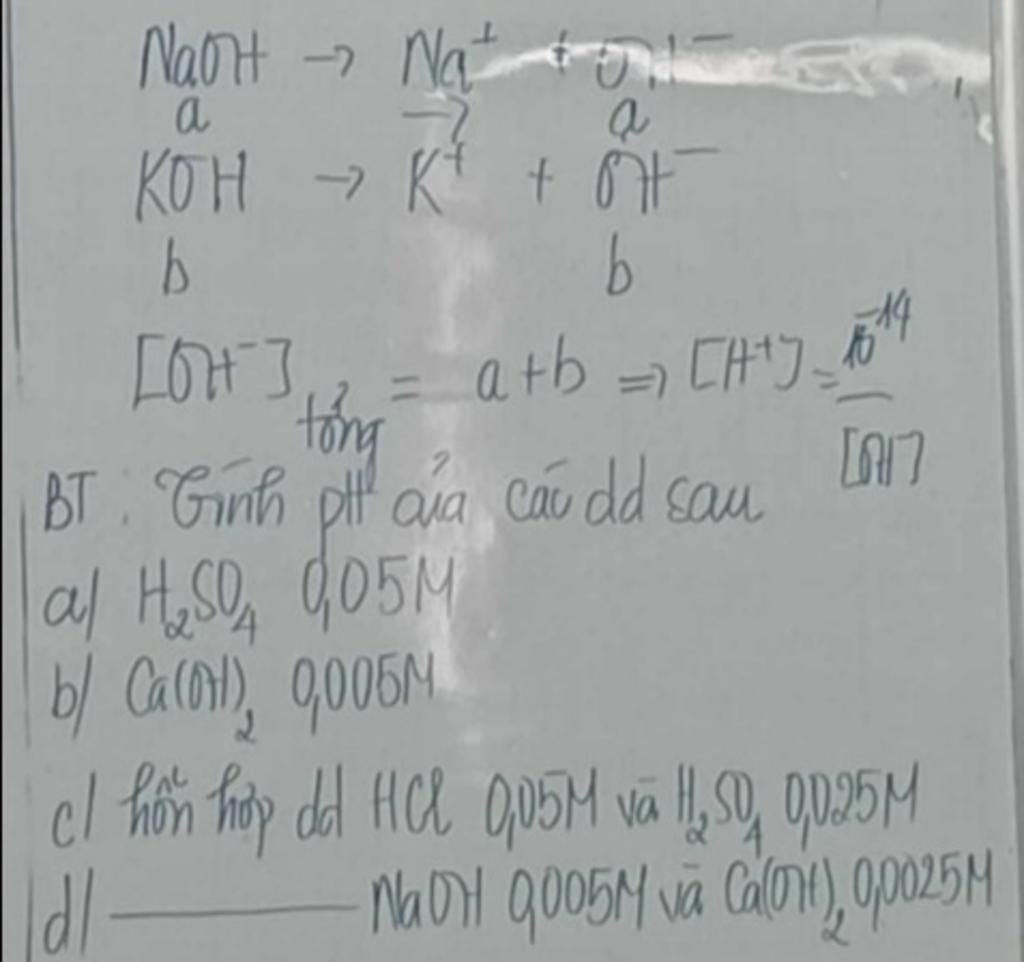 NaOH → Na⁺ + OH⁻
a → a
KOH → K⁺ + OH⁻
b b
[OH⁻] tổng = a+b ⇒ [H⁺] = 10⁻¹⁴ / [OH⁻]
BT : Tính pH của các dd sau
a/ H₂SO₄ 0,05M
b/ Ca(OH)₂ 0,005M
c/ hỗn hợp dd HCl 0,05M và H₂SO₄ 0,025M
d/ ——— NaOH 0,005M và Ca(OH)₂ 0,0025M